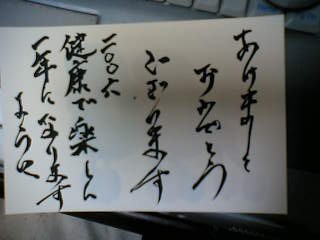 あけまして
おめでとう
ございます
二〇〇六
健康で楽しい
一年になります
ように